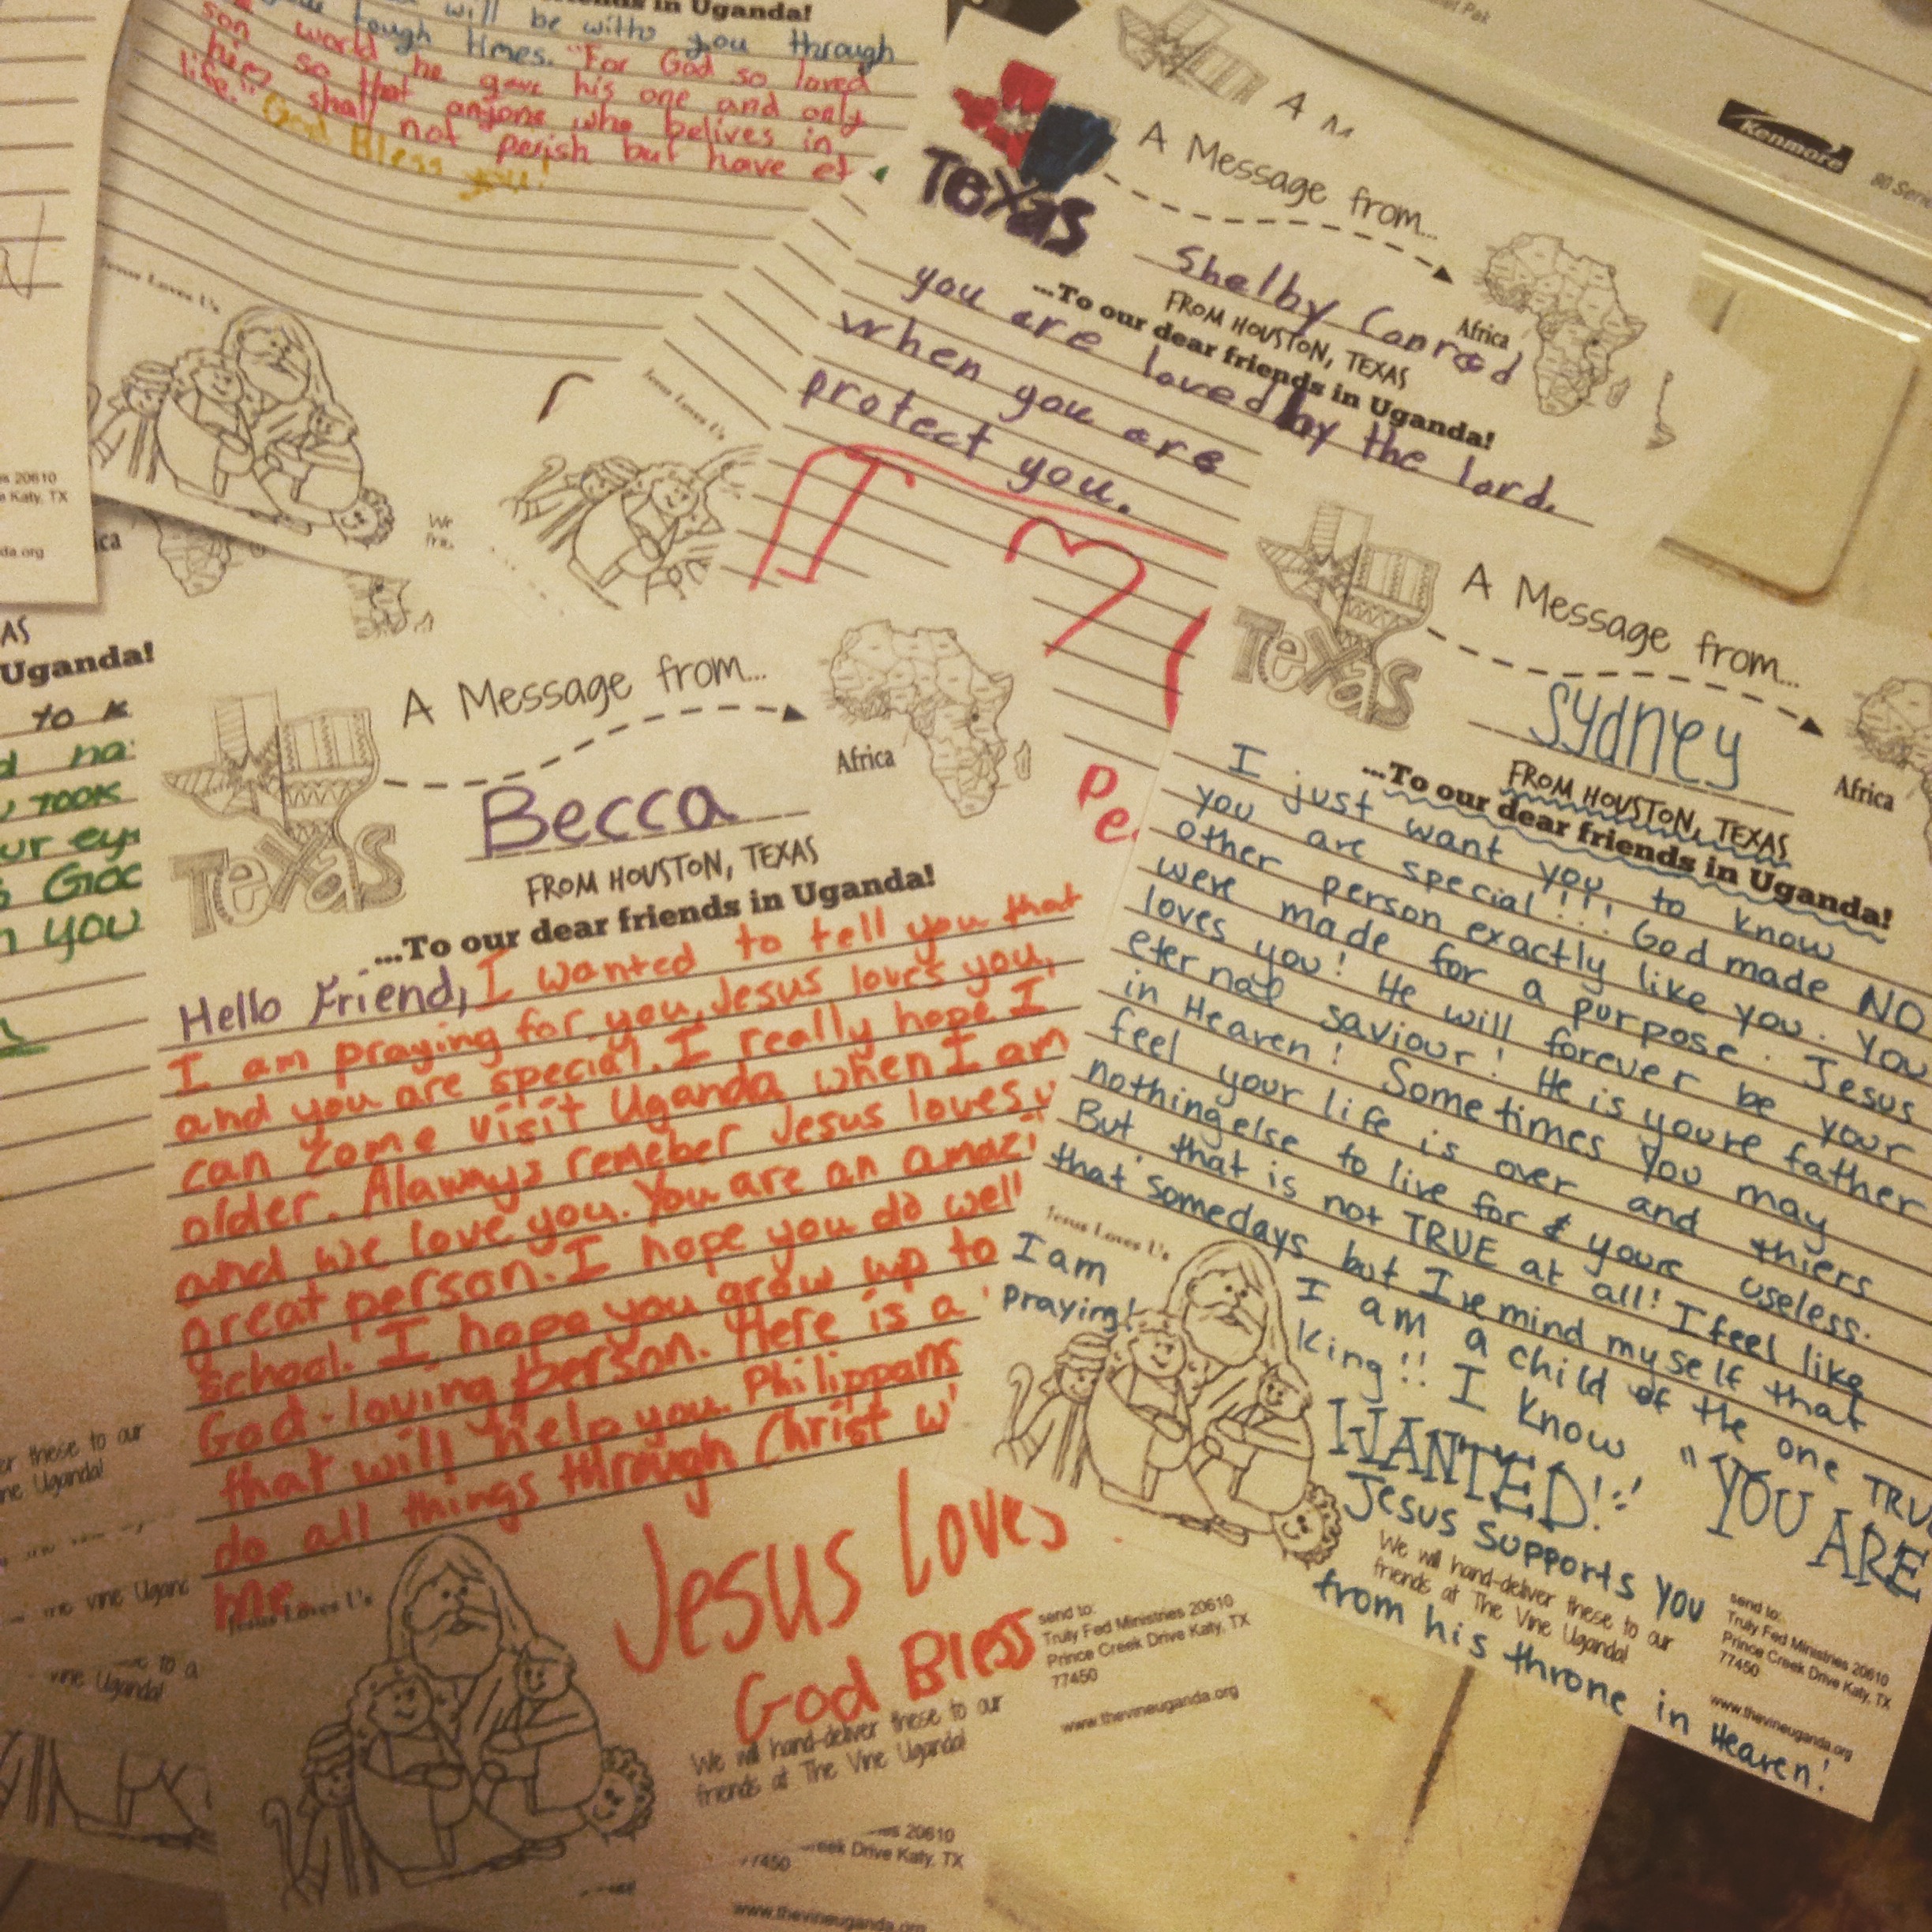 will be with you through
tough times. "For God so loved
world he gave his one and only
son
so that anyone who belives in
him shall not perish but have et
life."
God Bless you!
in Uganda!
Jesus Loves Us
20610
Katy, TX
Kenmore
80 Serie
A M
Texas
A Message from...
Shelby Conrad
Africa
FROM HOUSTON, TEXAS
...To our dear friends in Uganda!
you are loved by the lord.
when you are
protect you.
Jesus Loves Us
AS
Uganda!
to k
took
our ey
God
you
Texas
A Message from...
Africa
Becca
FROM HOUSTON, TEXAS
...To our dear friends in Uganda!
Hello Friend, I wanted to tell you that
I am praying for you, Jesus loves you,
and you are special. I really hope I
can come visit Uganda when I am
older. Alaways remeber Jesus loves y
and we love you. You are an amazi
great person. I hope you do well
school. I hope you grow up to
God-loving person. Here is a
that will help you. Philippans
do all things through Christ w
me.
Jesus Loves Us
Jesus Loves
God Bless
We will hand-deliver these to our
friends at The Vine Uganda!
send to:
Truly Fed Ministries 20610
Prince Creek Drive Katy, TX
77450
www.thevineuganda.org
Texas
A Message from...
Africa
Sydney
FROM HOUSTON, TEXAS
...To our dear friends in Uganda!
I just want you to know
you are special!!! God made NO
other person exactly like you. You
were made for a purpose. Jesus
loves you! He will forever be your
eternal saviour! He is youre father
in Heaven! Sometimes you may
feel your life is over and thiers
nothing else to live for & youre useless.
But that is not TRUE at all! I feel like
that somedays but I remind myself that
I am a child of the one TRU
King!! I know "YOU ARE
WANTED!"
Jesus supports you
from his throne in Heaven!
Jesus Loves Us
I am
praying!
We will hand-deliver these to our
friends at The Vine Uganda!
send to:
Truly Fed Ministries 20610
Prince Creek Drive Katy, TX
77450
www.thevineuganda.org
these to our
Vine Uganda!
Vine Uganda!
20610
Creek Drive Katy, TX
77450
www.thevineuganda.org